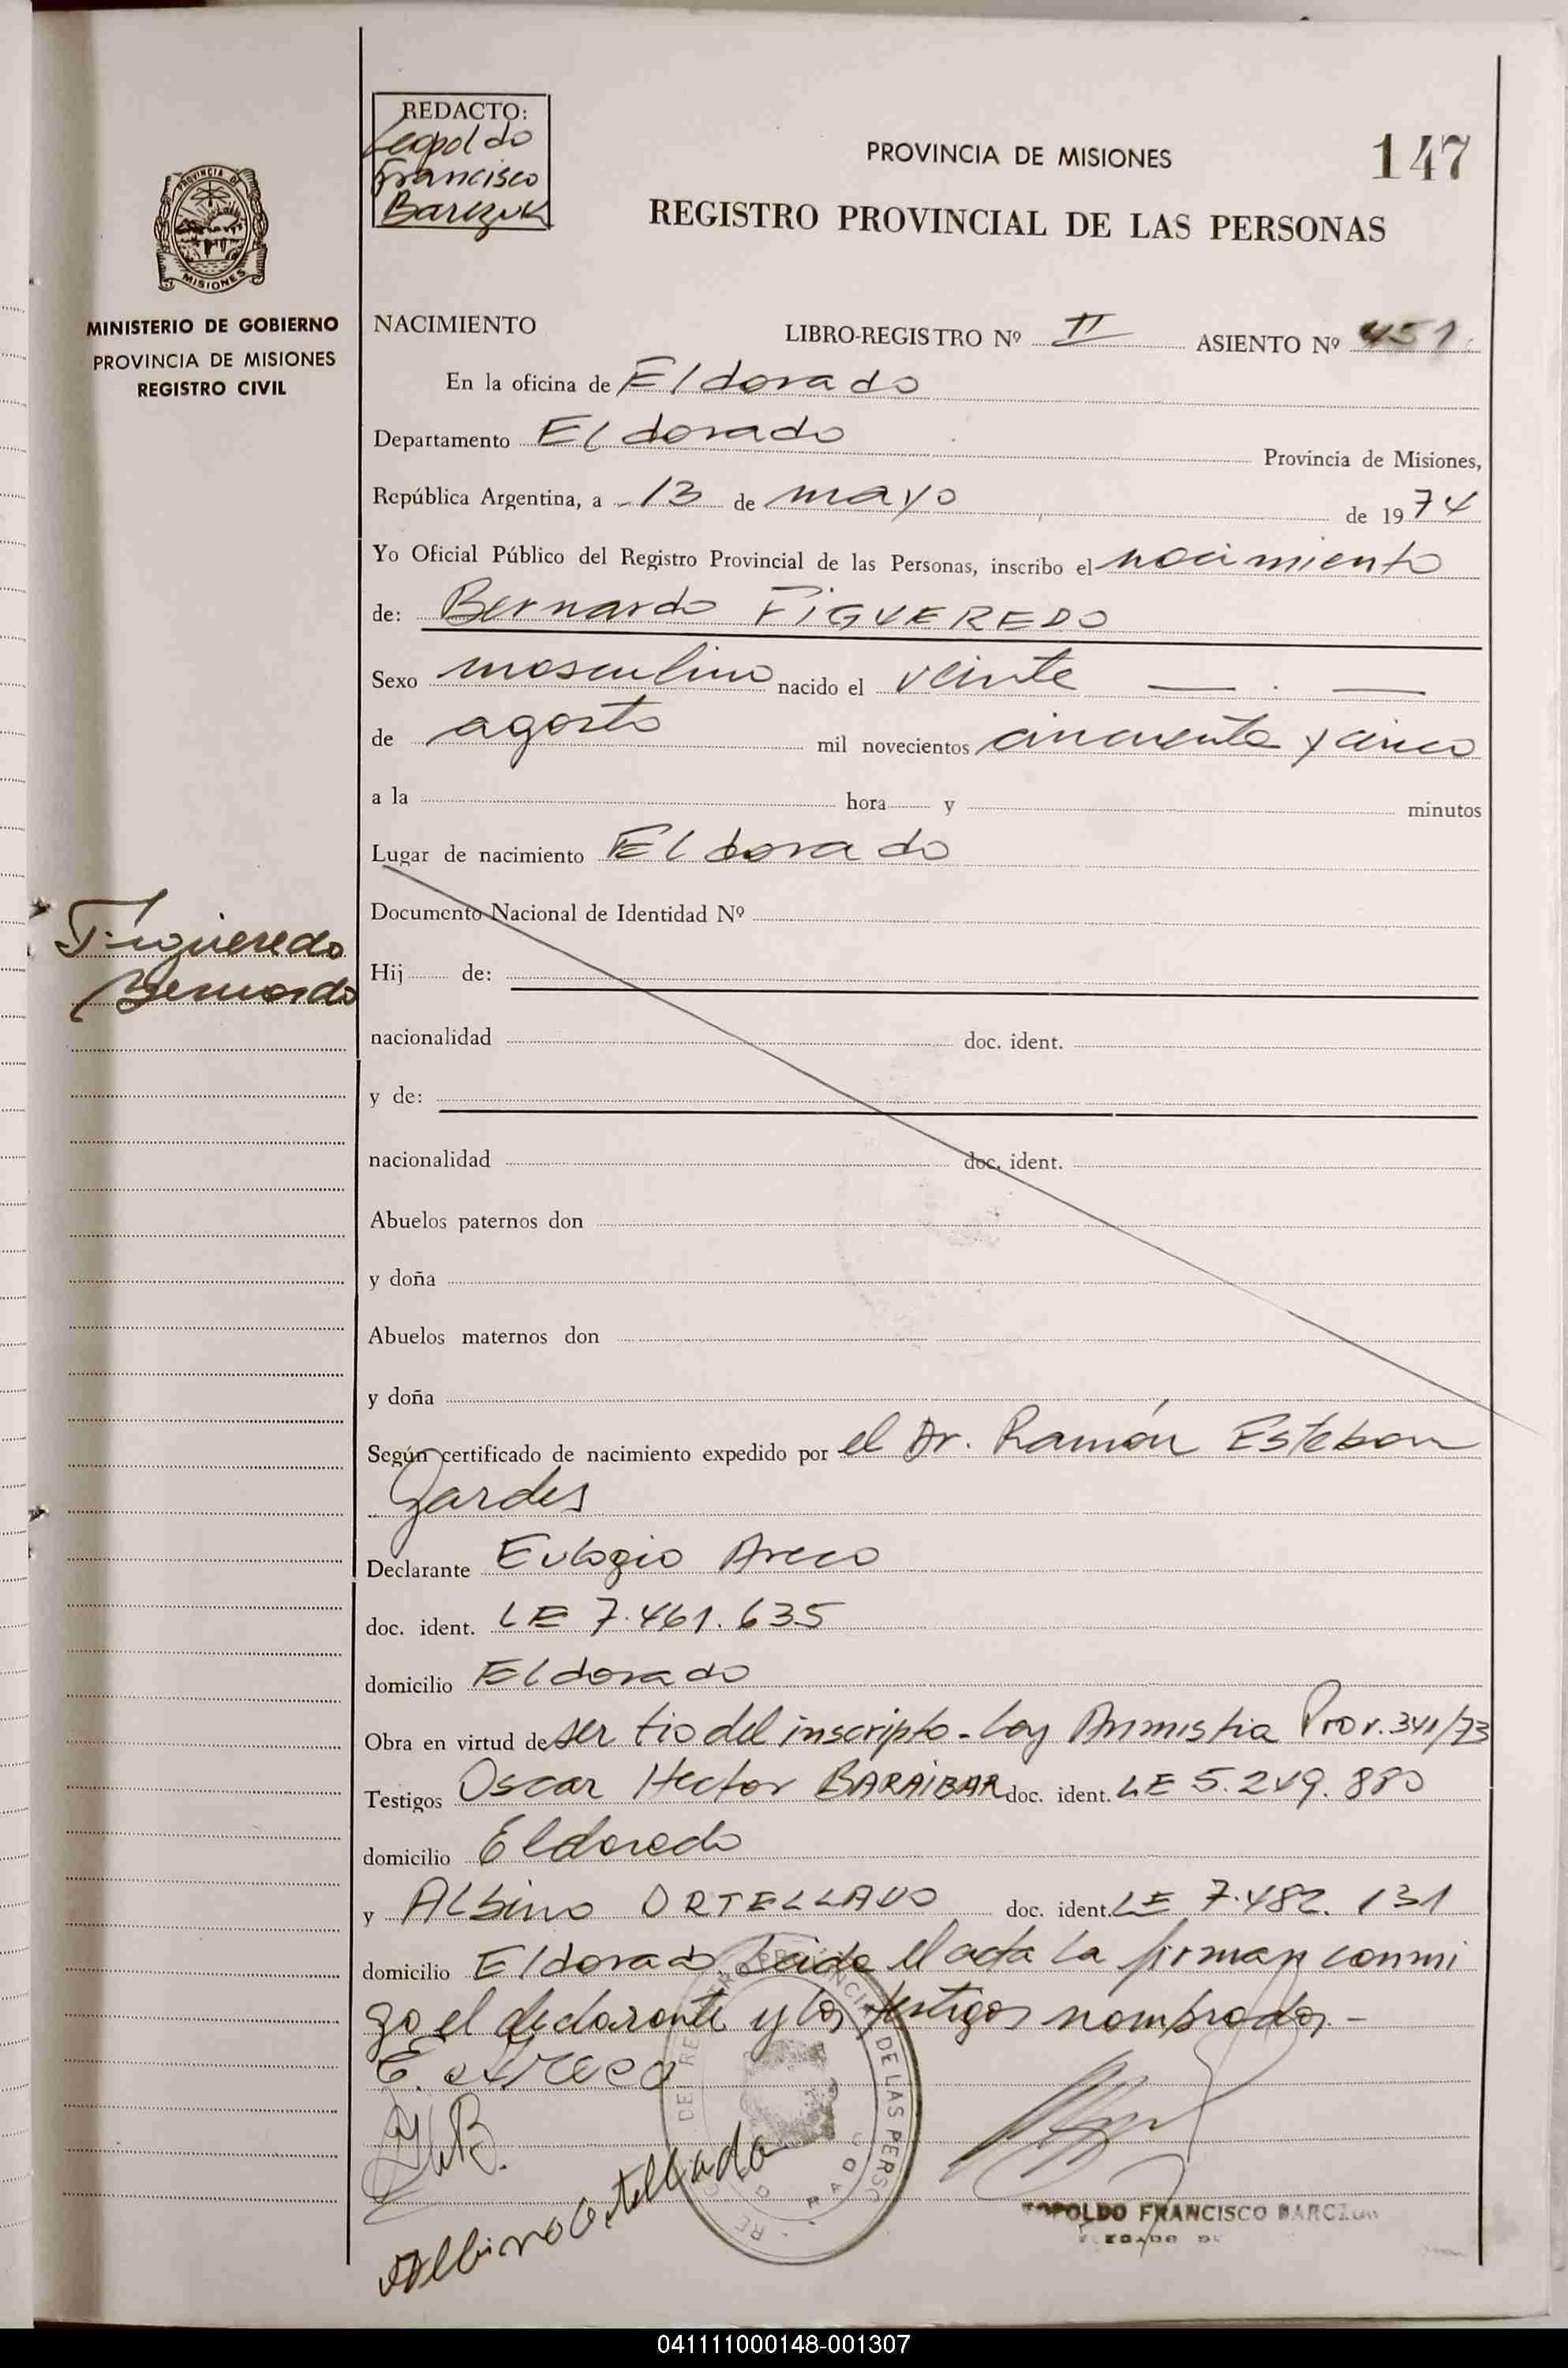 REDACTO:
Leopoldo
Francisco
Barczuk
PROVINCIA DE MISIONES
147
REGISTRO PROVINCIAL DE LAS PERSONAS
PROVINCIA DE
MISIONES
MINISTERIO DE GOBIERNO
PROVINCIA DE MISIONES
REGISTRO CIVIL
NACIMIENTO LIBRO-REGISTRO Nº II ASIENTO Nº 451
En la oficina de Eldorado
Departamento Eldorado Provincia de Misiones,
República Argentina, a 13 de mayo de 1974
Yo Oficial Público del Registro Provincial de las Personas, inscribo el nacimiento
de: Bernardo FIGUEREDO
Sexo masculino nacido el veinte
de agosto mil novecientos cincuenta y cinco
a la hora y minutos
Lugar de nacimiento Eldorado
Figueredo
Bernardo
Documento Nacional de Identidad Nº
Hij de:
nacionalidad doc. ident.
y de:
nacionalidad doc. ident.
Abuelos paternos don
y doña
Abuelos maternos don
y doña
Según certificado de nacimiento expedido por el Dr. Ramón Esteban
Gardes
Declarante Eulogio Areco
doc. ident. LE 7.461.635
domicilio Eldorado
Obra en virtud de ser tio del inscripto - Ley Amnistia Prov. 341/73
Testigos Oscar Hector BARAIBAR doc. ident. LE 5.249.880
domicilio Eldorado
y Albino ORTELLADO doc. ident. LE 7.482.131
domicilio Eldorado. Leida el acta la firman conmi
go el declarante y los testigos nombrados.-
E. Areco
Albino Ortellado
LEOPOLDO FRANCISCO BARCZUK
041111000148-001307